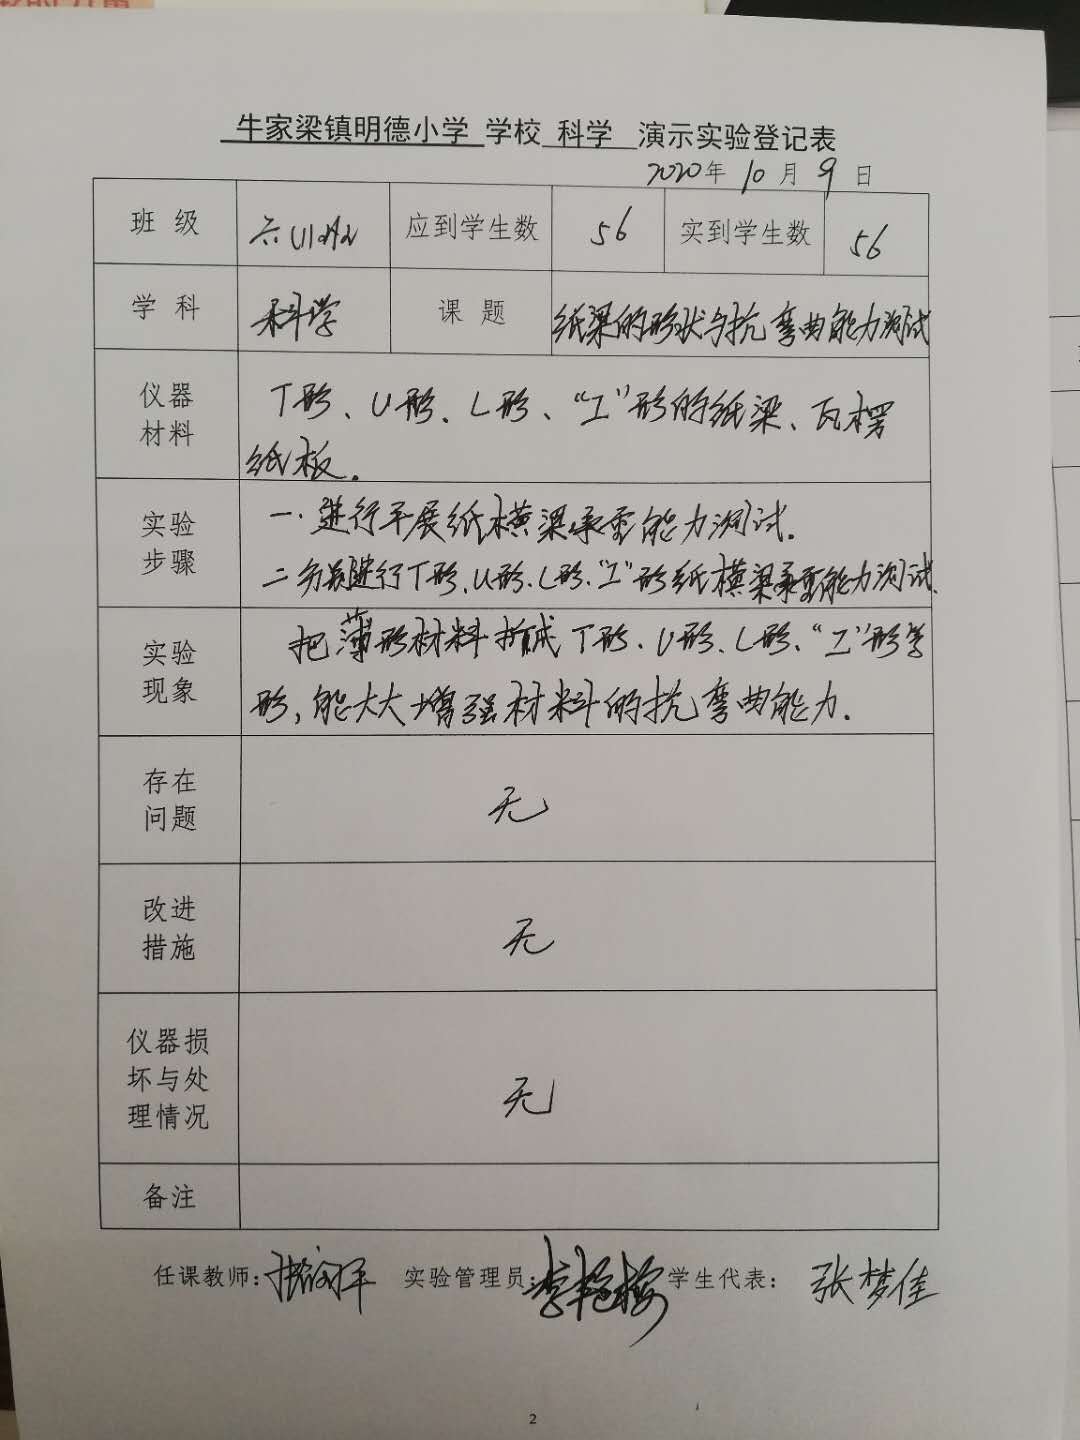 牛家梁镇明德小学 学校 科学 演示实验登记表
2020年 10月 9日
班级 六(1)班 应到学生数 56 实到学生数 56
学科 科学 课题 纸梁的形状与抗弯曲能力测试
仪器材料
T形、U形、L形、“工”形的纸梁、瓦楞
纸板.
实验步骤
一.进行平展纸横梁承重能力测试.
二分别进行T形.U形.L形.“工”形纸横梁承重能力测试.
实验现象
把薄形材料折成T形.U形、L形、“工”形等
形,能大大增强材料的抗弯曲能力.
存在问题
无
改进措施
无
仪器损坏与处理情况
无
备注
任课教师: 实验管理员: 学生代表: 张梦佳
2